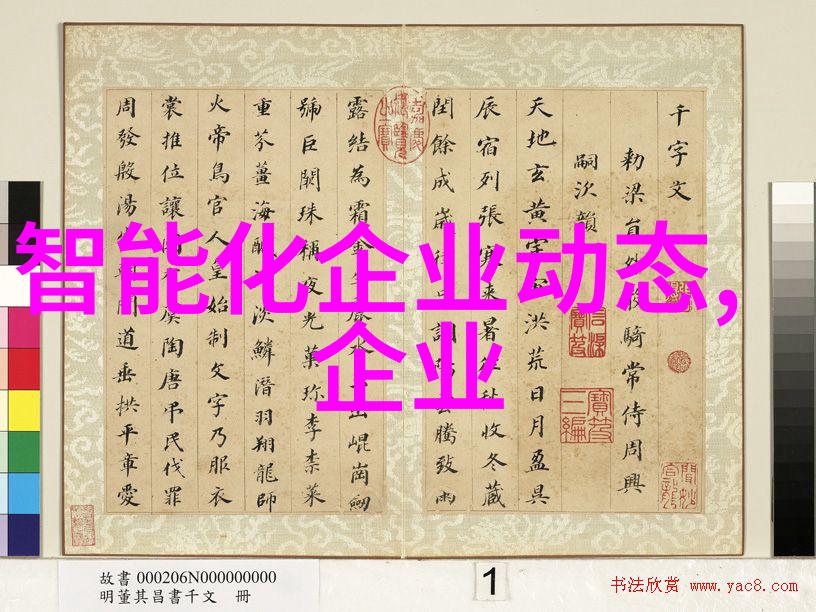 智能化企业动态,
企业
千字文
勅梁員外散騎常侍周興
嗣次韻
天地玄黃宇洪荒日月盈昃
辰宿列張寒來暑往秋收冬藏
閏餘成歲調雲騰致雨
露結為霜金水出崐崗劒
號巨闕珠稱夜光菓珍李柰菜
重芥薑海醎淡鱗潛羽翔龍師
火帝鳥官人皇始制文字乃服衣
裳推位讓國虞陶唐弔民伐罪
周發殷湯問道垂拱平章愛
故書 000206N000000000
明董其昌書千文 冊
1
书法欣赏 www.yac8.com